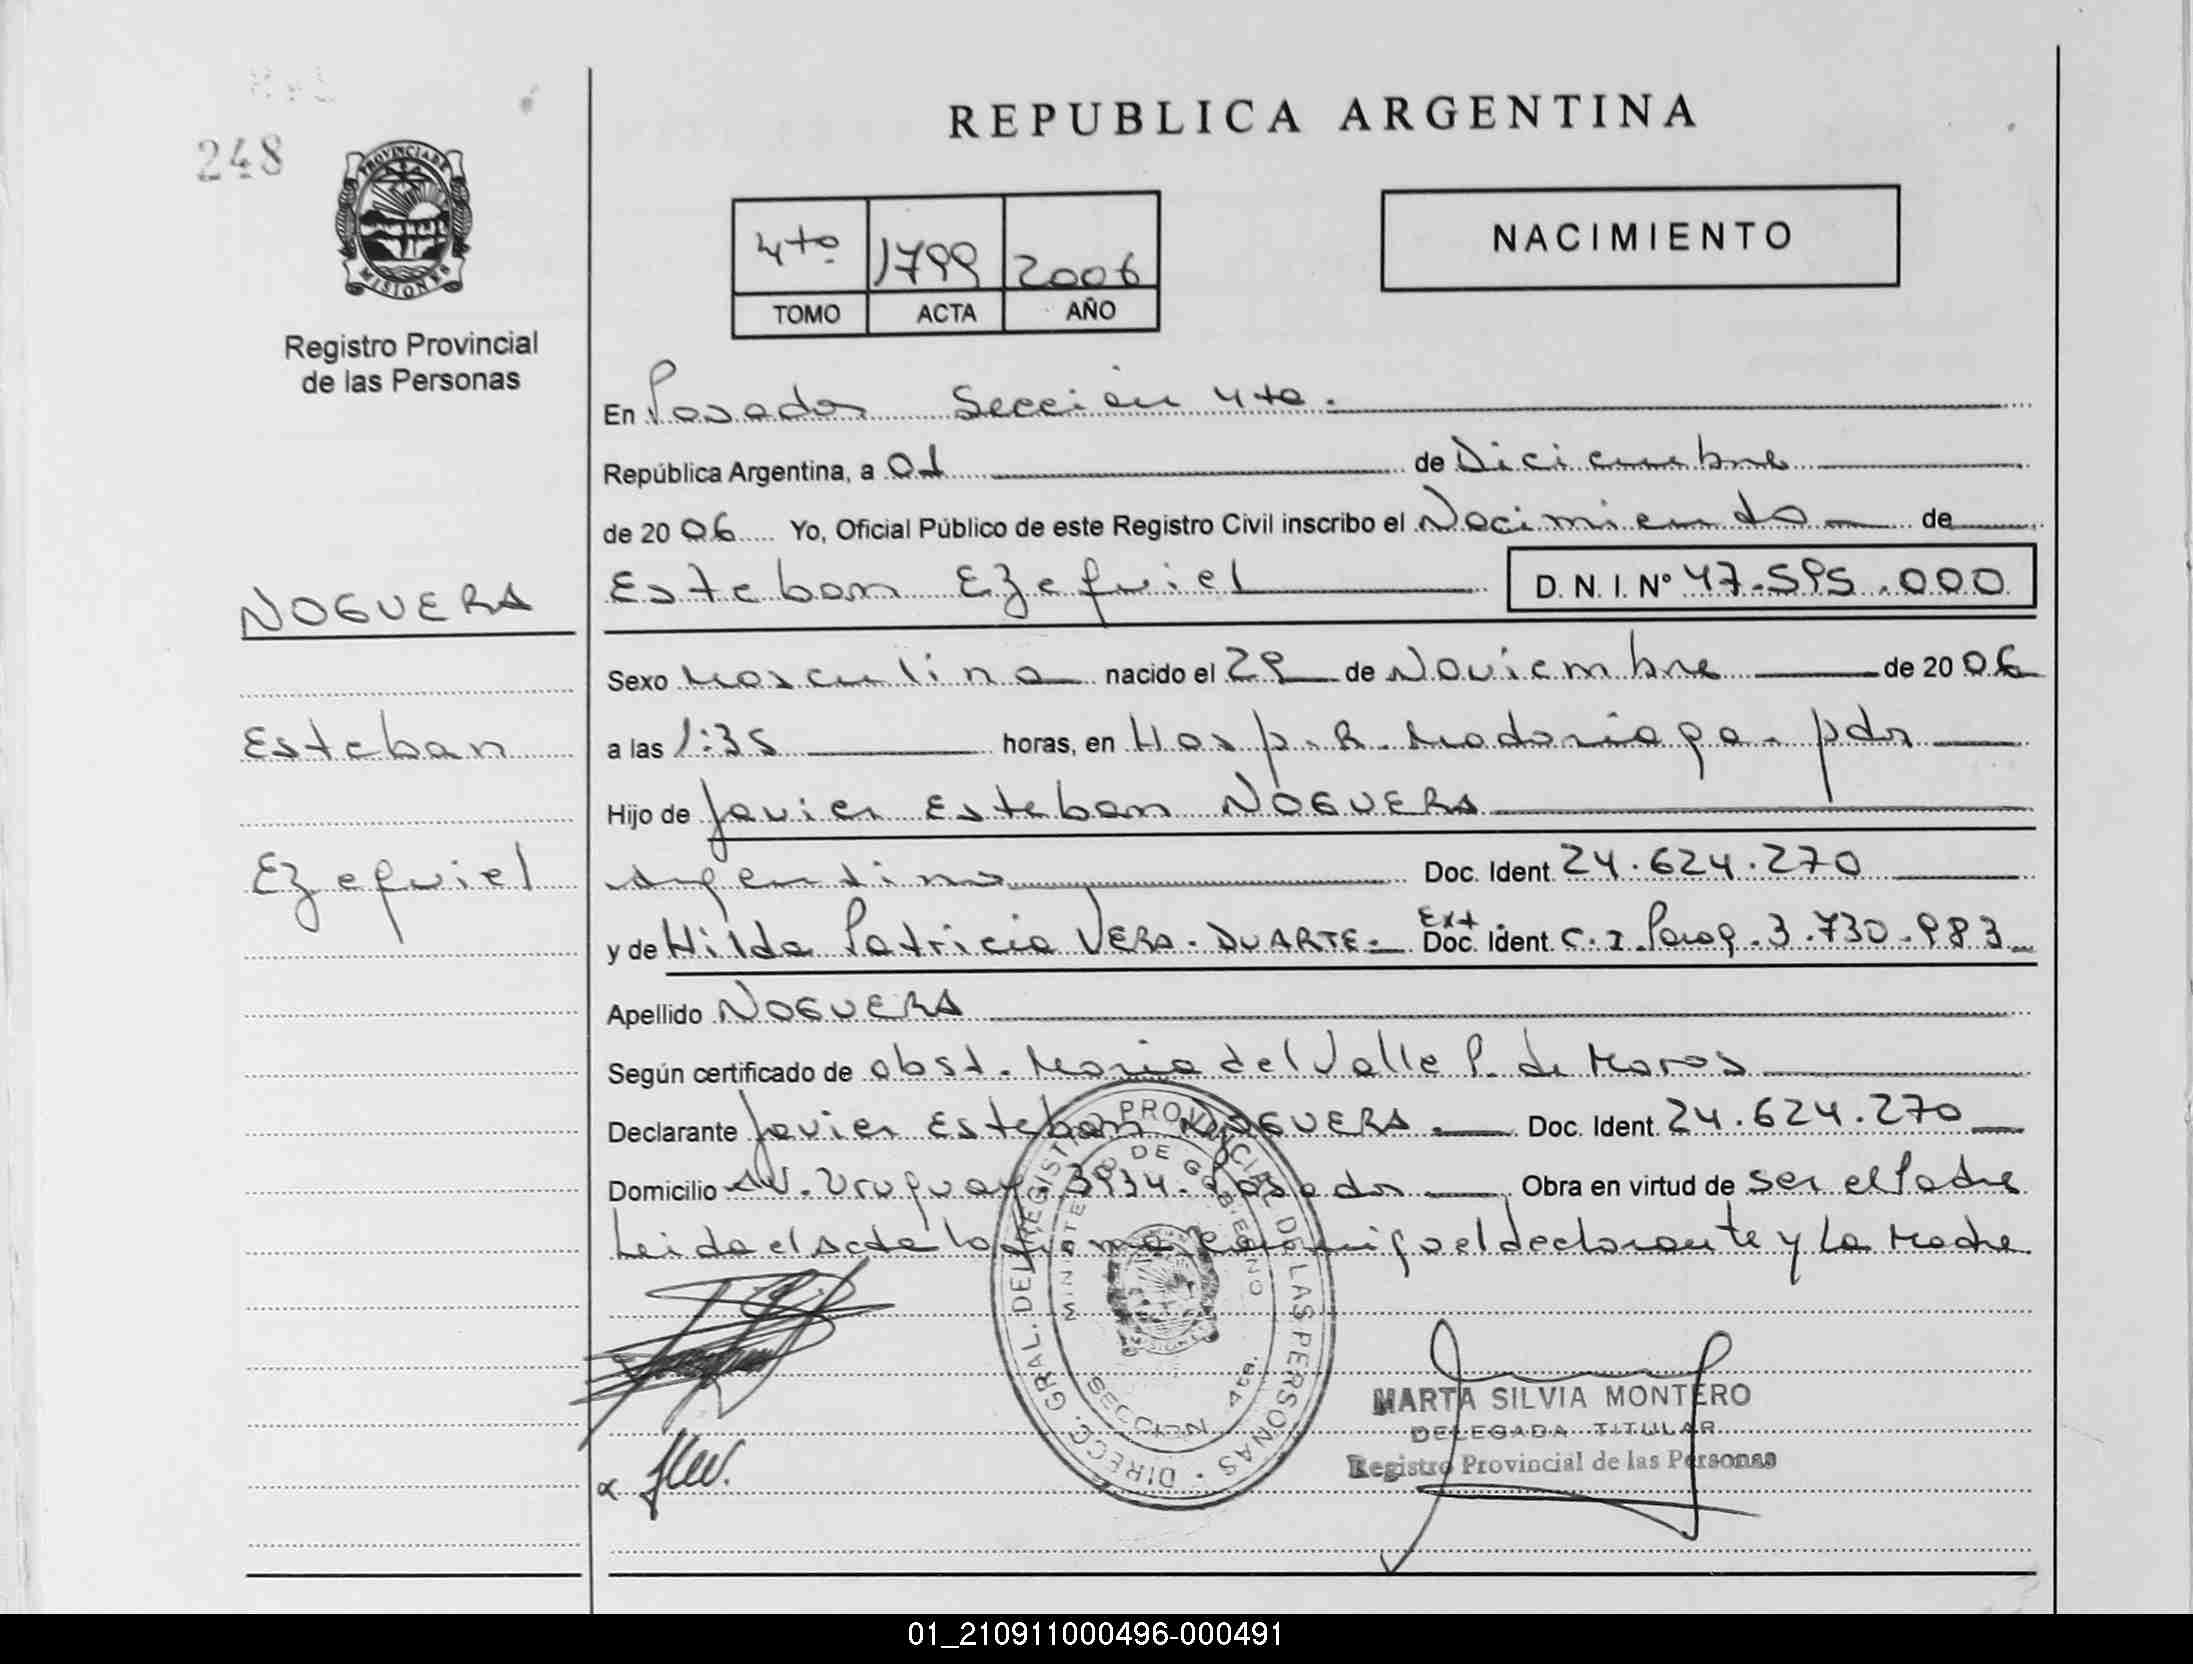 248
PROVINCIA DE
MISIONES
Registro Provincial
de las Personas
REPUBLICA ARGENTINA
4to 1799 2006
TOMO ACTA AÑO
NACIMIENTO
En Posadas Sección 4ta.
República Argentina, a 01 de Diciembre
de 2006 Yo, Oficial Público de este Registro Civil inscribo el Nacimiento de
NOGUERA
Esteban Ezequiel D. N. I. Nº 47.595.000
Sexo Masculino nacido el 29 de Noviembre de 2006
Esteban
a las 1:35 horas, en Hosp. R. Madariaga. pdas
Hijo de Javier Esteban NOGUERA
Ezequiel
Argentino Doc. Ident. 24.624.270
y de Hilda Patricia VERA. DUARTE. Ext. Doc. Ident. C.I. Parag. 3.730.983
Apellido NOGUERA
Según certificado de obst. Maria del Valle P. de Maros
Declarante Javier Esteban NOGUERA. Doc. Ident. 24.624.270
Domicilio AV. Uruguay 3934. Posadas Obra en virtud de ser el Padre
Leida el Acta la firma conmigo el declarante y La Madre
DIRECC. GRAL. DEL REGISTRO PROVINCIAL DE LAS PERSONAS
MINISTERIO DE GOBIERNO
SECCION 4ta.
MARTA SILVIA MONTERO
DELEGADA TITULAR
Registro Provincial de las Personas
01_210911000496-000491